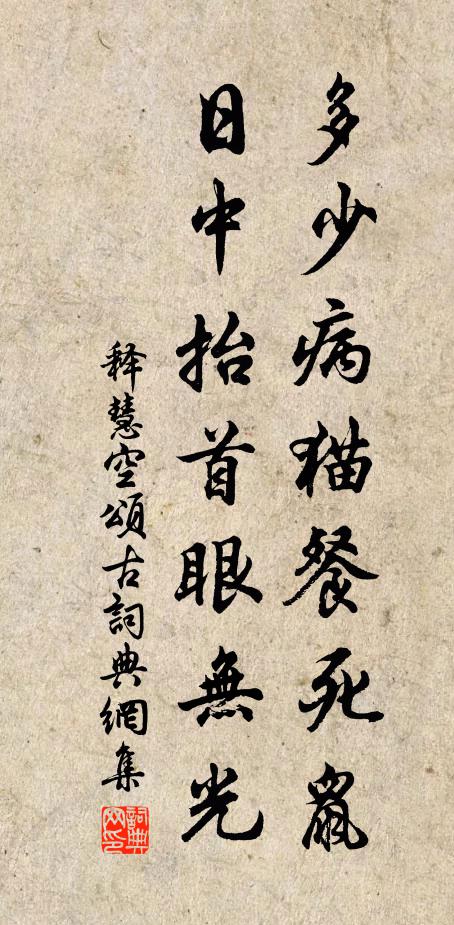 多少病猫餐死鼠
日中抬首眼無光
释慧空頌古詞典網集
詞典網印